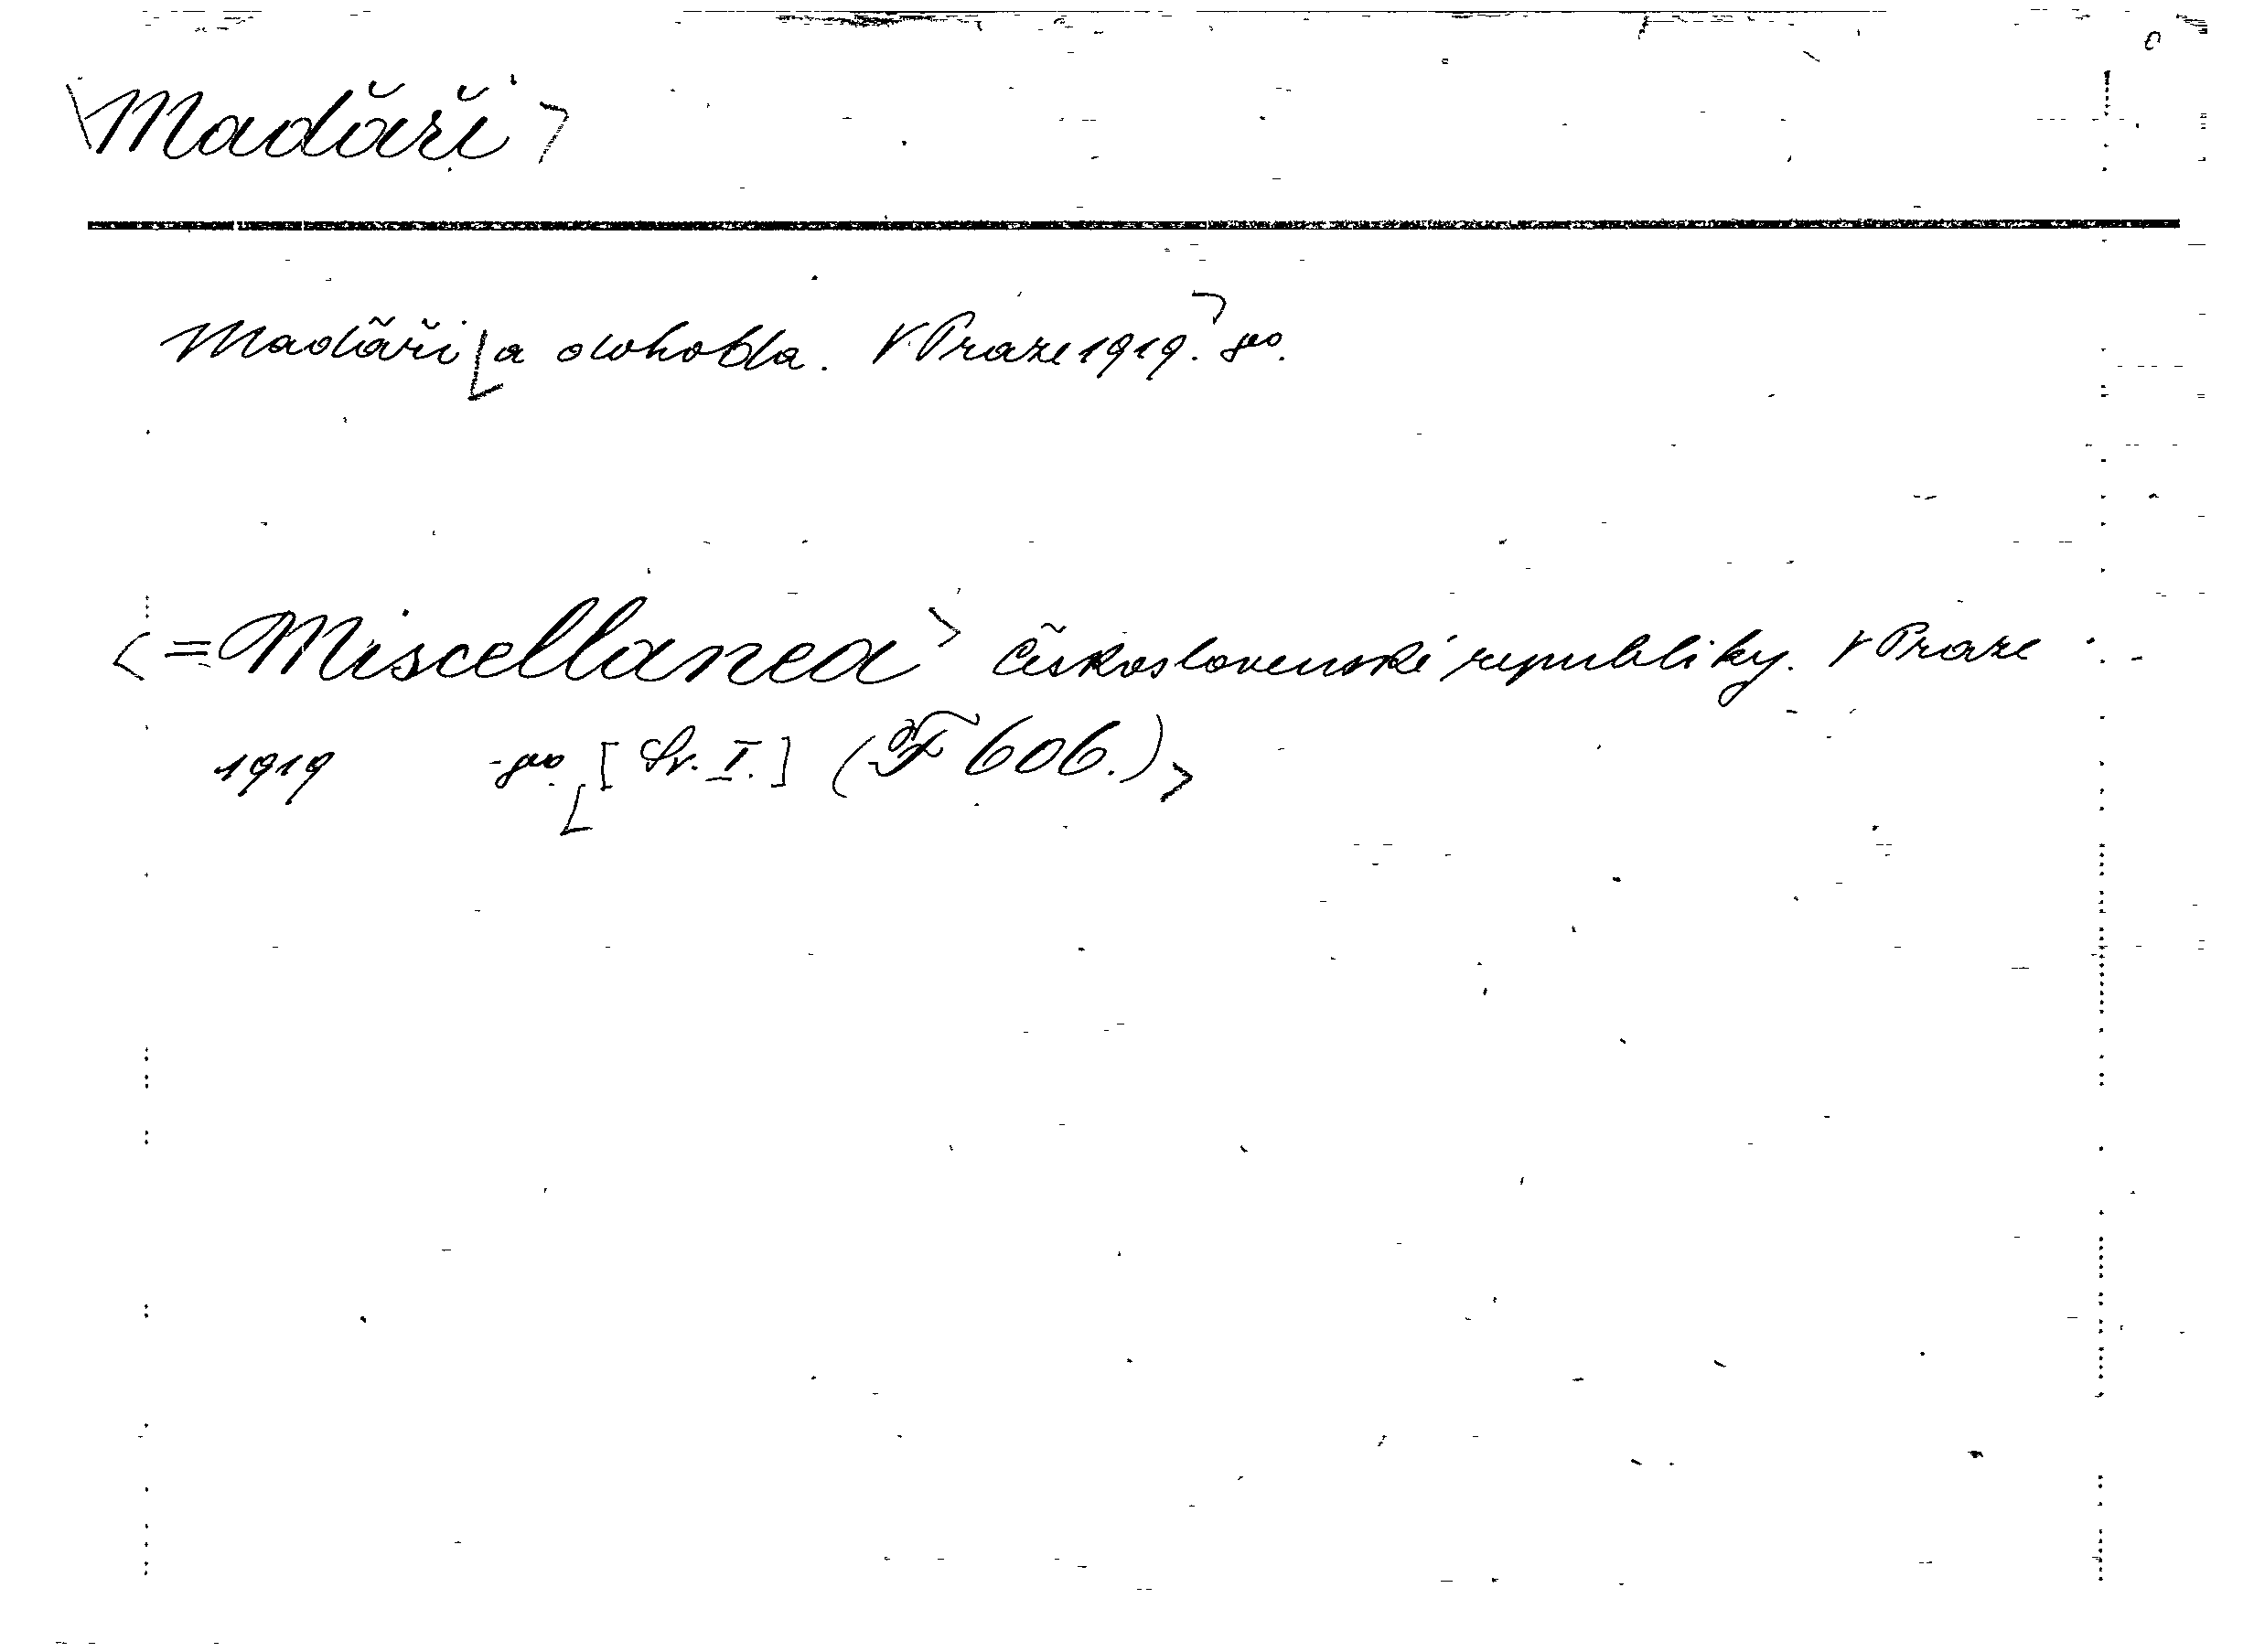 Maďaři
Maďaři a dohoda. V Praze 1919. 8º.
= Miscellanea Československé republiky. V Praze
1919 - 8º. [Sv. I.] (F 606.)